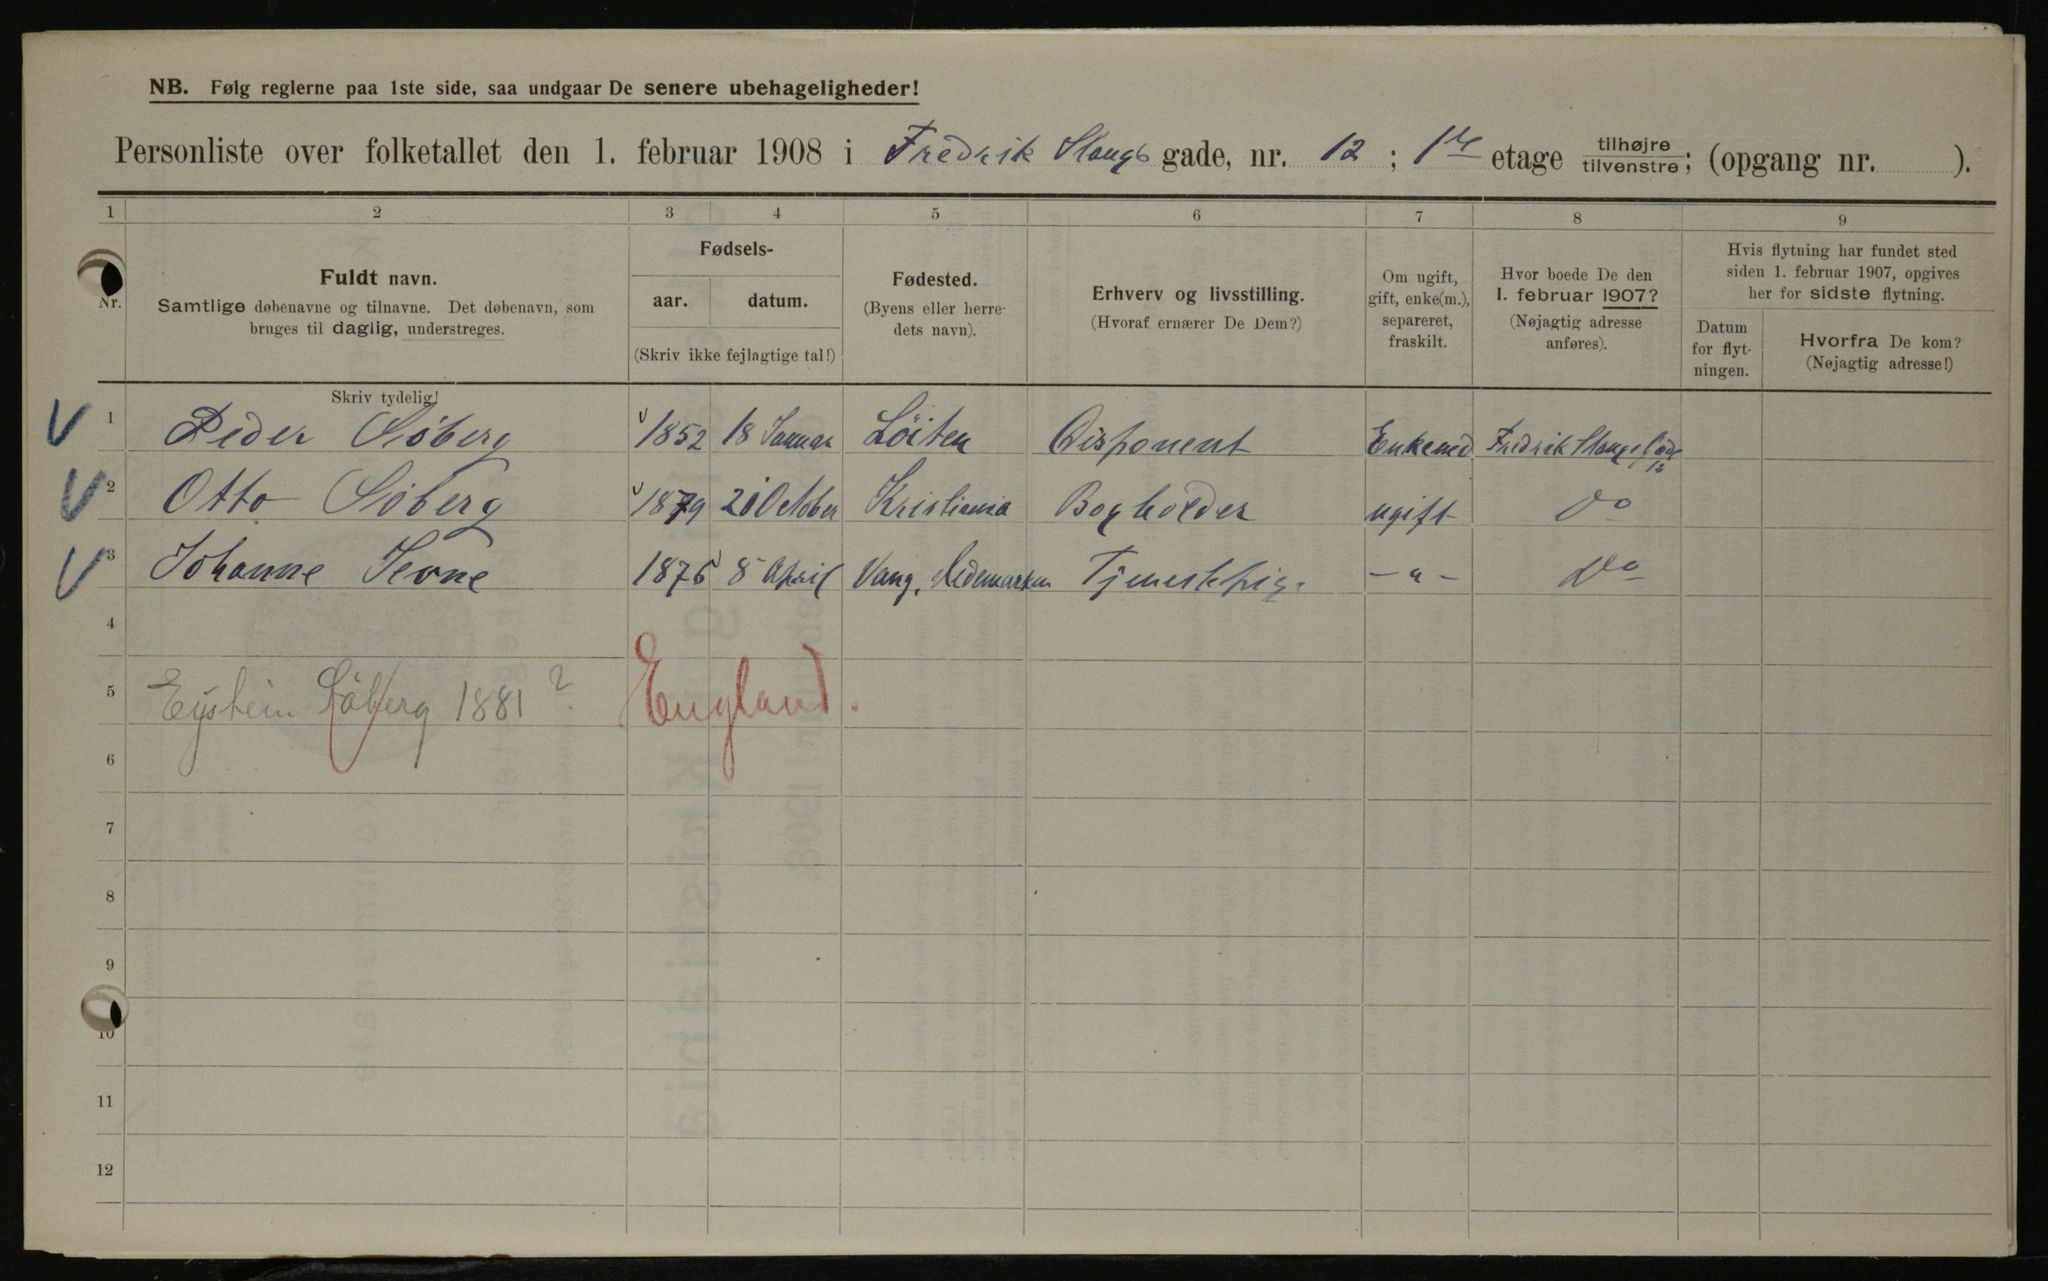 NB. Følg reglerne paa 1ste side, saa undgaar De senere ubehageligheder!
Personliste over folketallet den 1. februar 1908 i Fredrik Stangs gade, nr. 12 ; 1ste etage tilhøjre tilvenstre; (opgang nr. ).
1 2 3 4 5 6 7 8 9
Nr.
Fuldt navn.
Samtlige døbenavne og tilnavne. Det døbenavn, som
bruges til daglig, understreges.
Fødsels-
aar. datum.
(Skriv ikke fejlagtige tal!)
Fødested.
(Byens eller herre-
dets navn).
Erhverv og livsstilling.
(Hvoraf ernærer De Dem?)
Om ugift,
gift, enke(m.),
separeret,
fraskilt.
Hvor boede De den
1. februar 1907?
(Nøjagtig adresse
anføres).
Hvis flytning har fundet sted
siden 1. februar 1907, opgives
her for sidste flytning.
Datum
for flyt-
ningen.
Hvorfra De kom?
(Nøjagtig adresse!)
Skriv tydelig!
V 1 Peder Söberg v 1852 18 Januar Löiten Disponent Enkemd. Fredrik Stangs Gade 12
V 2 Otto Söberg v 1879 20 October Kristiania Bogholder ugift Do
V 3 Johanne 1876 8 April Vang, Hedemarken Tjenestepige -"- Do
4
5 Eystein Söberg 1881 ? England.
6
7
8
9
10
11
12